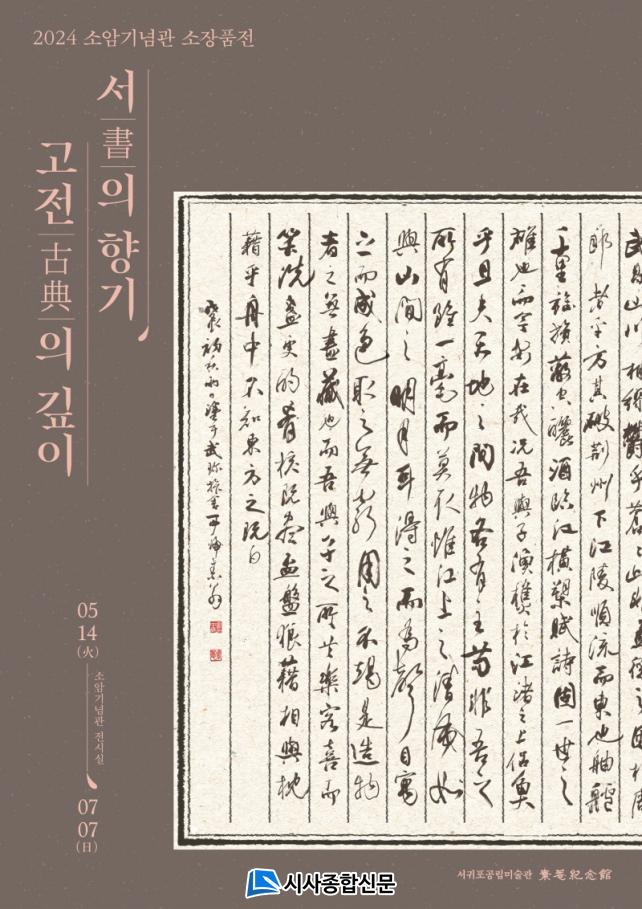 2024 소암기념관 소장품전
서書의 향기
고전古典의 깊이
郎者乎方其破荊州下江陵順流而東也舳艫
千里旌旗蔽空釃酒臨江橫槊賦詩固一世之
雄也而今安在哉況吾與子漁樵於江渚之上侶魚
乎且夫天地之間物各有主苟非吾之
所有雖一毫而莫取惟江上之清風與
與山間之明月耳得之而爲聲目寓
之而成色取之無禁用之不竭是造物
者之無盡藏也而吾與子之所共樂客喜而
笑洗盞更酌肴核既盡盃盤狼藉相與枕
藉乎舟中不知東方之既白
05
14
(火)
소암기념관 전시실
07
07
(日)
서귀포공립미술관 素菴紀念館
시사종합신문